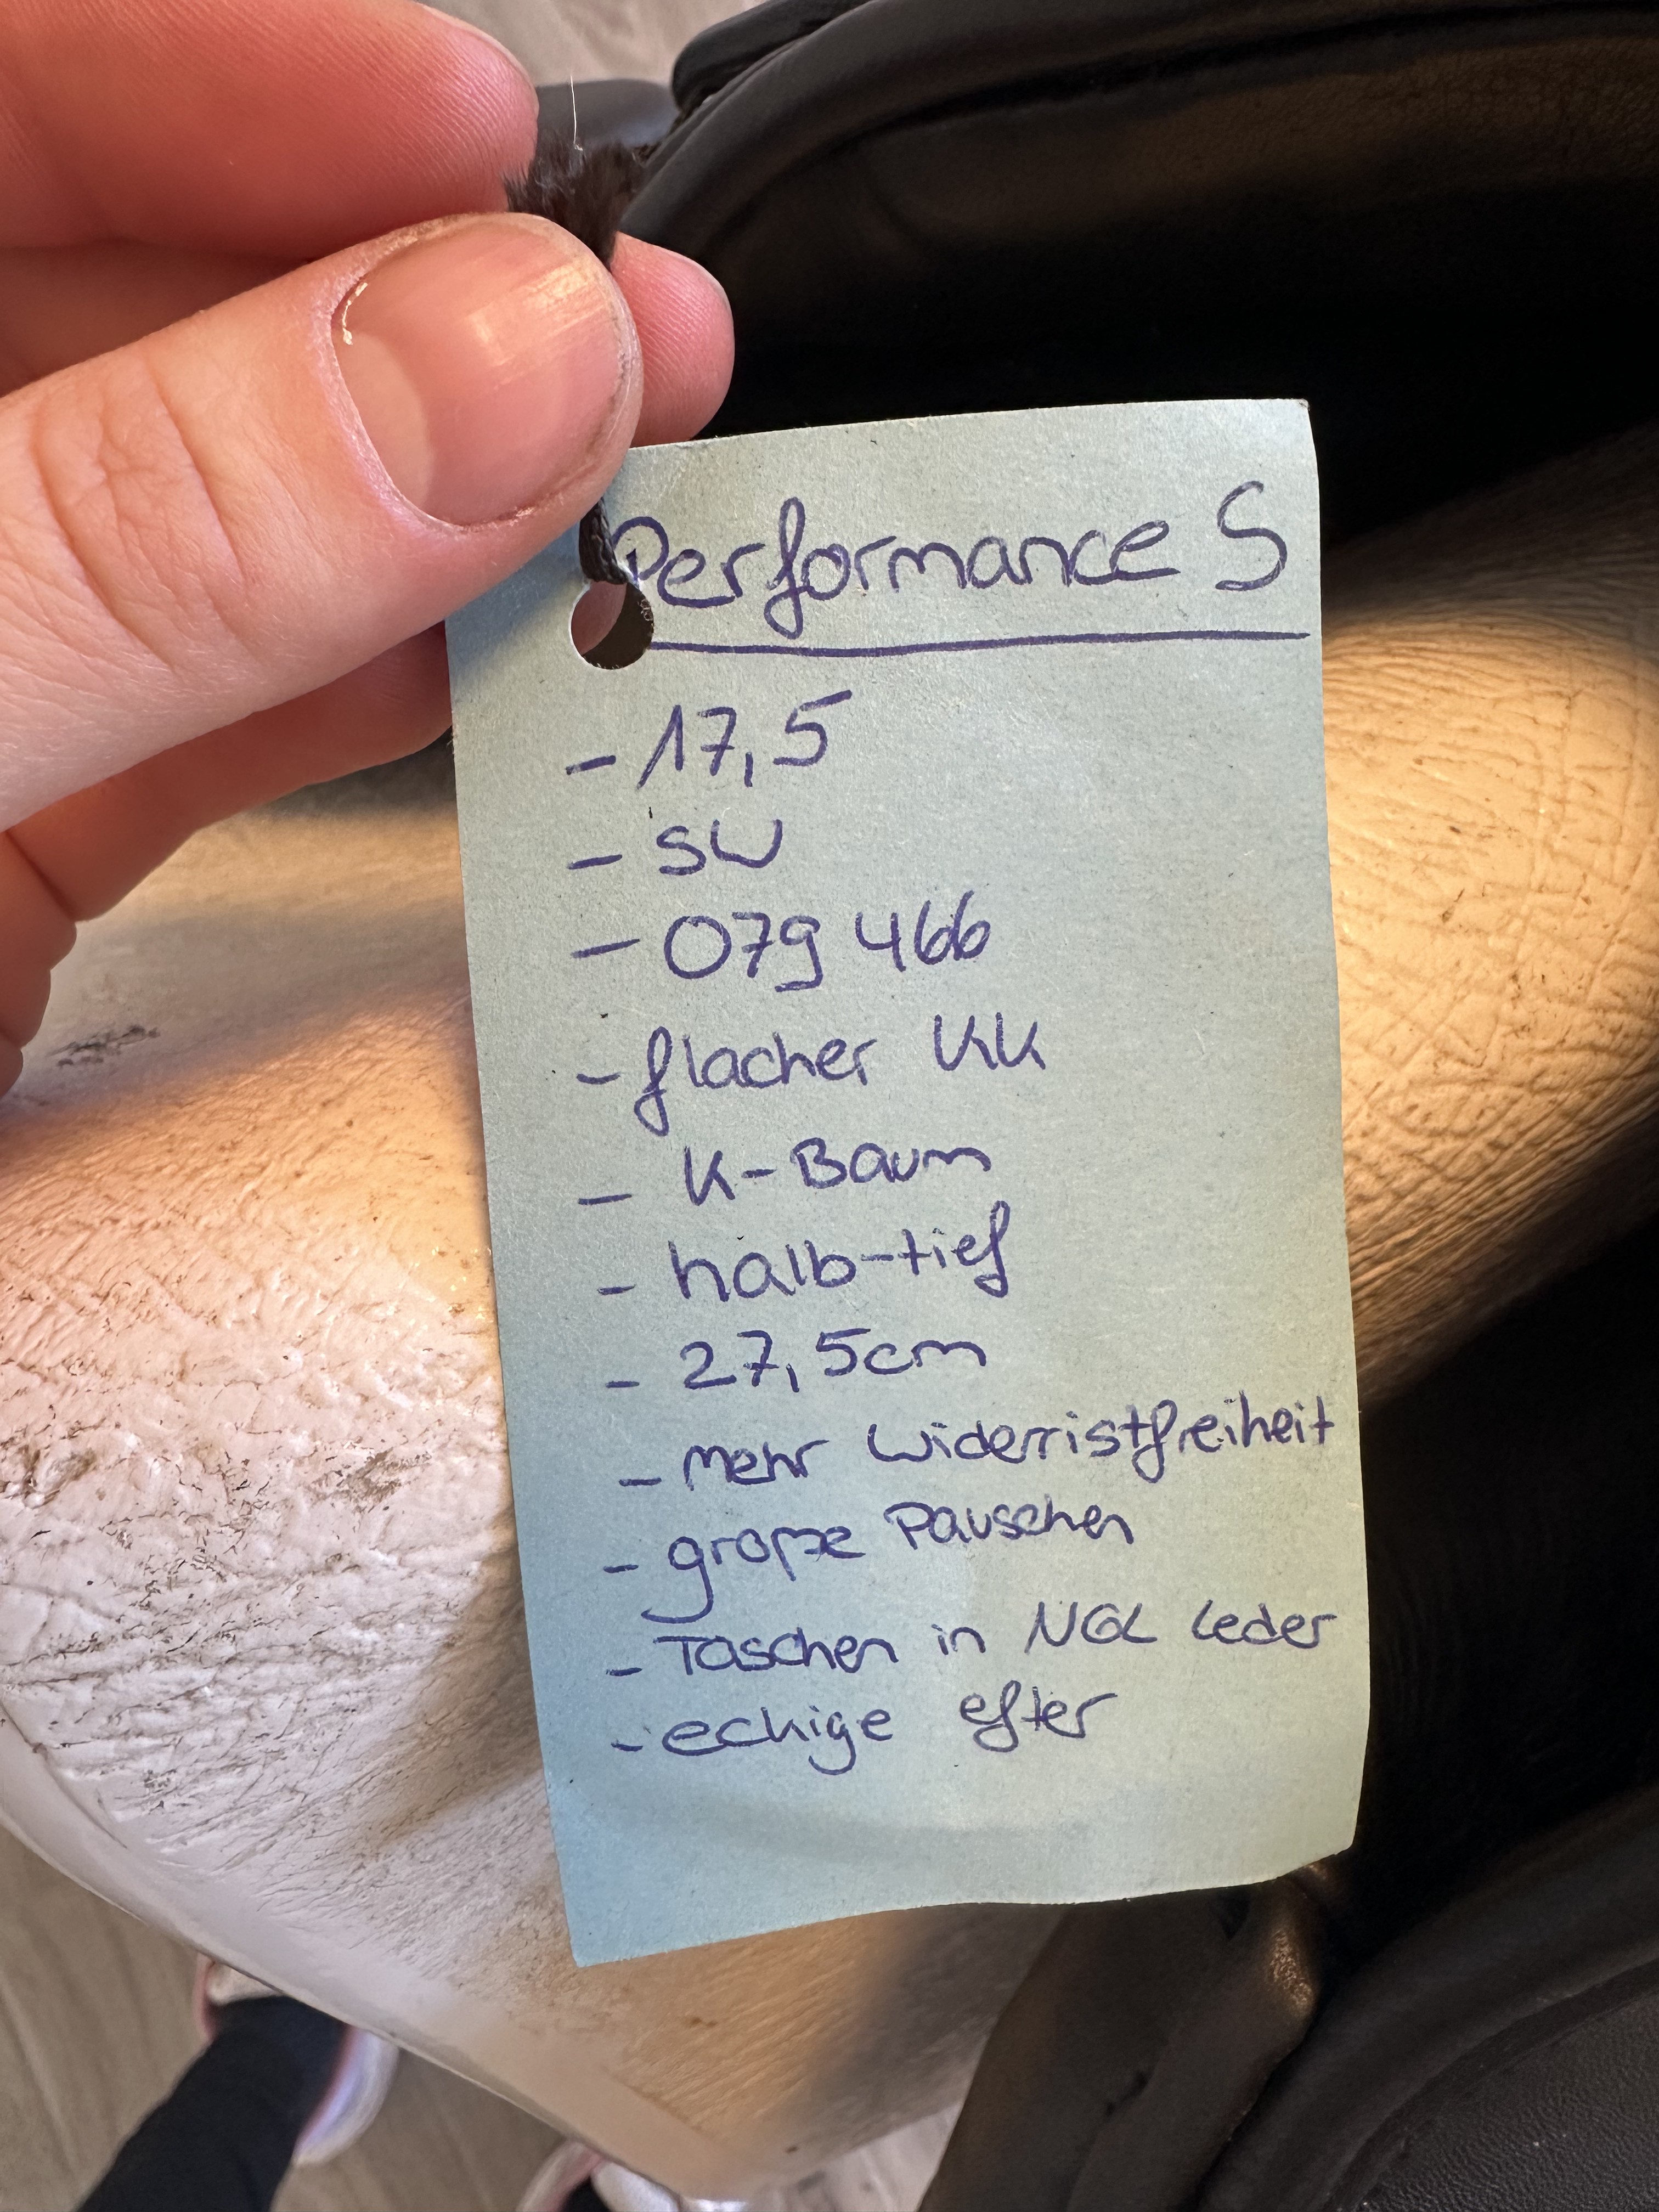 Performance S
- 17,5
- SW
- 079 466
- flacher KK
- K-Baum
- halb-tief
- 27,5cm
- mehr Widerristfreiheit
- große Pauschen
- Taschen in NGL Leder
- eckige efter